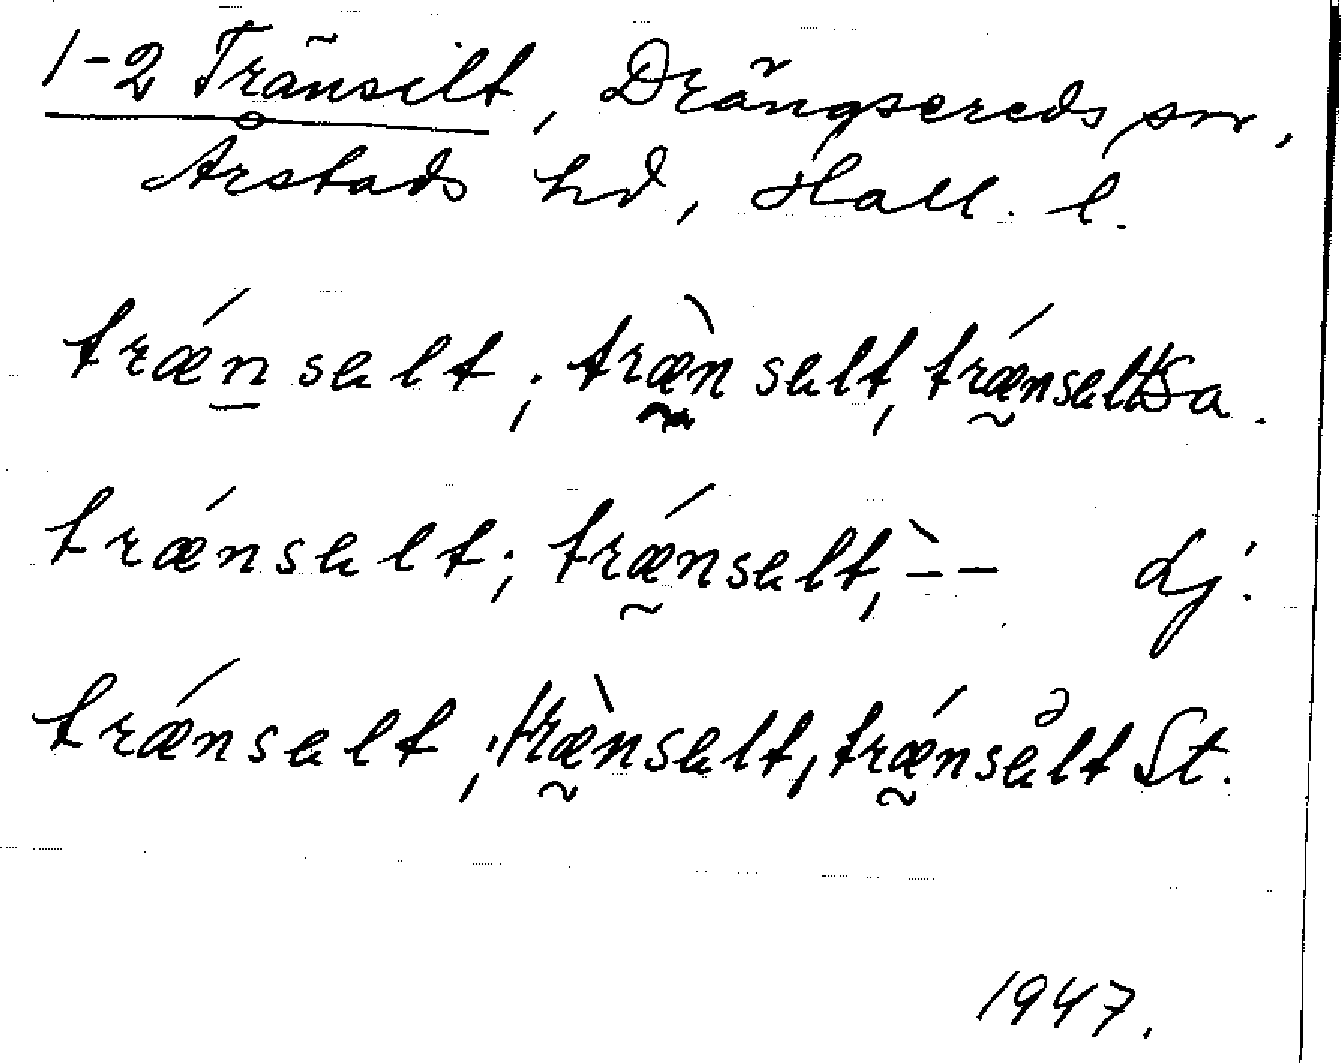 1-2 Tränsilt, Drängsereds sn,
Årstads hd, Hall. l.
trǽnsɐlt; træ̀nsɐlt, trǽnsɐlt Sa.
trǽnsɐlt; trǽnsɐlt, `-- Lj.
trǽnsɐlt; træ̀nsɐlt, trǽnsɐlt St.
1947.